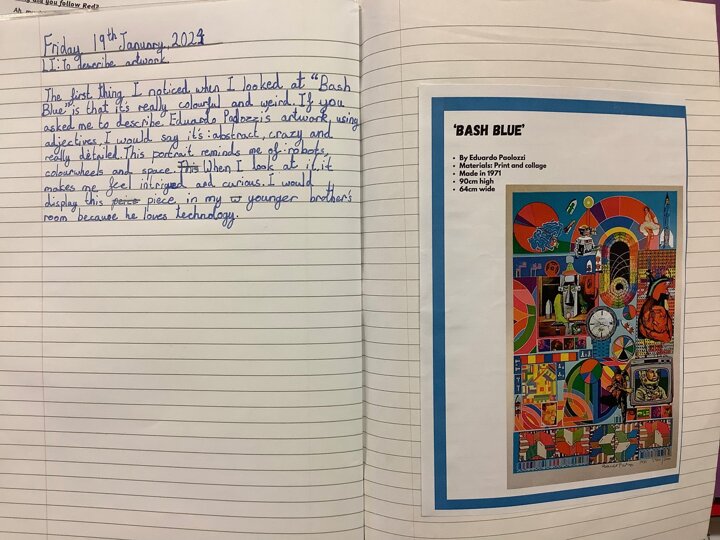 did you follow Red?
Friday 19th January, 2024
LI: To describe artwork
The first thing I noticed when I looked at "Bash
Blue" is that it's really colourful and weird. If you
asked me to describe Eduardo Paolozzi's artwork, using
adjectives, I would say it's: abstract, crazy and
really detailed. This portrait reminds me of: robots,
colourwheels and space. This When I look at it, it
makes me feel intriged and curious. I would
display this piece in my younger brother's
room because he loves technology.
'BASH BLUE'
• By Eduardo Paolozzi
• Materials: Print and collage
• Made in 1971
• 90cm high
• 64cm wide